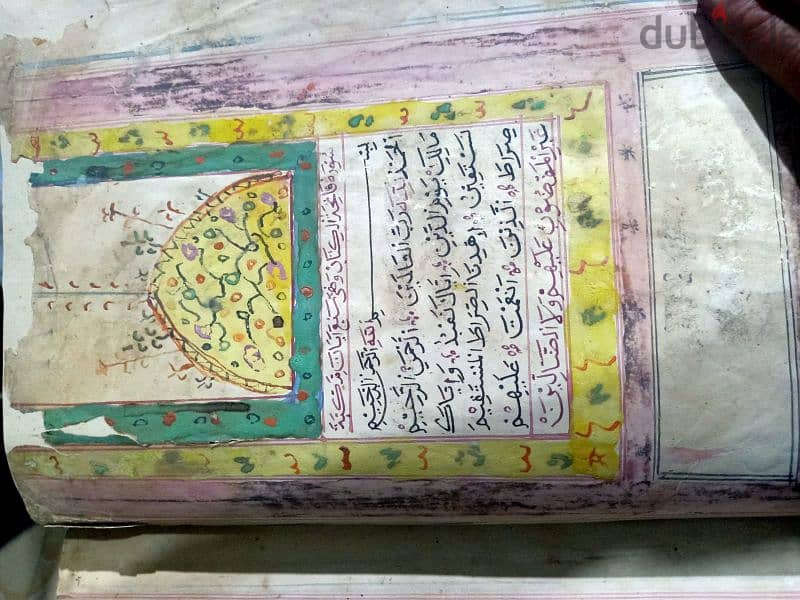 سُورَةُ فَاتِحَةِ الكِتَابِ وَهِيَ سَبْعُ آيَاتٍ مَكِّيَّة
بِسْمِ اللَّهِ الرَّحْمَنِ الرَّحِيمِ
اَلْحَمْدُ لِلَّهِ رَبِّ الْعَالَمِينَ الرَّحْمَنِ الرَّحِيمِ
مَالِكِ يَوْمِ الدِّينِ اِيَّاكَ نَعْبُدُ وَاِيَّاكَ
نَسْتَعِينُ اِهْدِنَا الصِّرَاطَ الْمُسْتَقِيمَ
صِرَاطَ الَّذِينَ اَنْعَمْتَ عَلَيْهِمْ
غَيْرِ الْمَغْضُوبِ عَلَيْهِمْ وَلَا الضَّالِّينَ